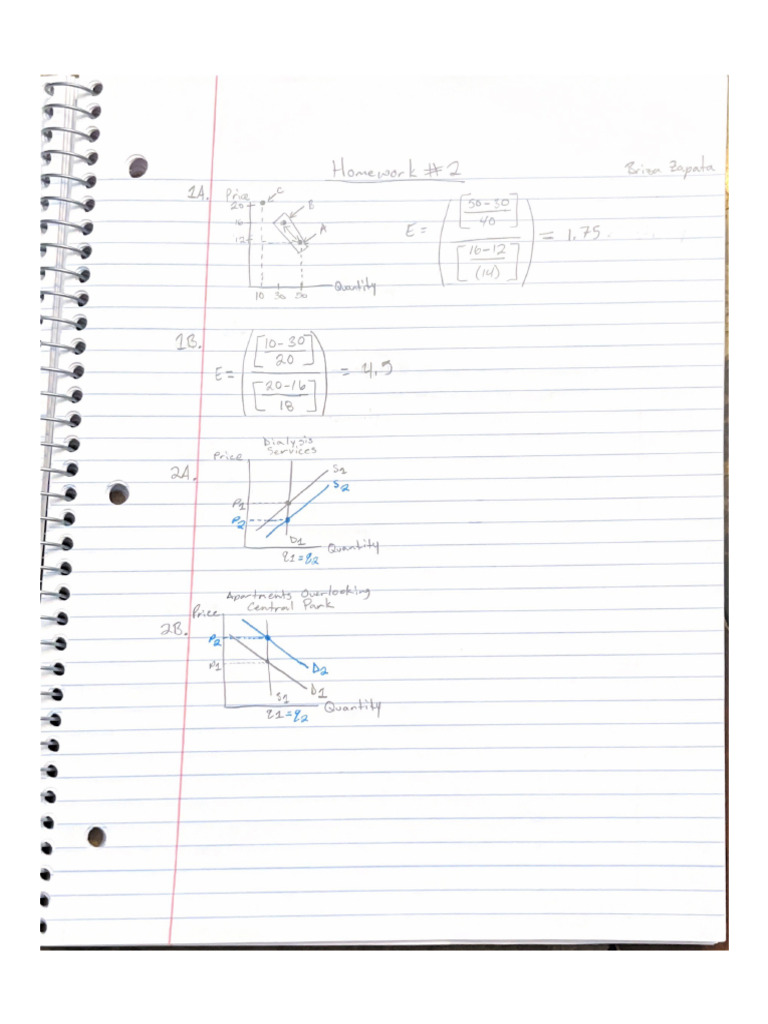 Homework # 2
Briza Zapata
1A.
Price
20
16
12
C
B
A
10 30 50
Quantity
E = ([50-30]/40) / ([16-12]/(14)) = 1.75
1B.
E = ([10-30]/20) / ([20-16]/18) = 4.5
2A.
Dialysis
Services
Price
S1
S2
P1
P2
D1
Quantity
q1=q2
2B.
Apartments Overlooking
Central Park
Price
P2
P1
D2
D1
S1
Quantity
q1=q2